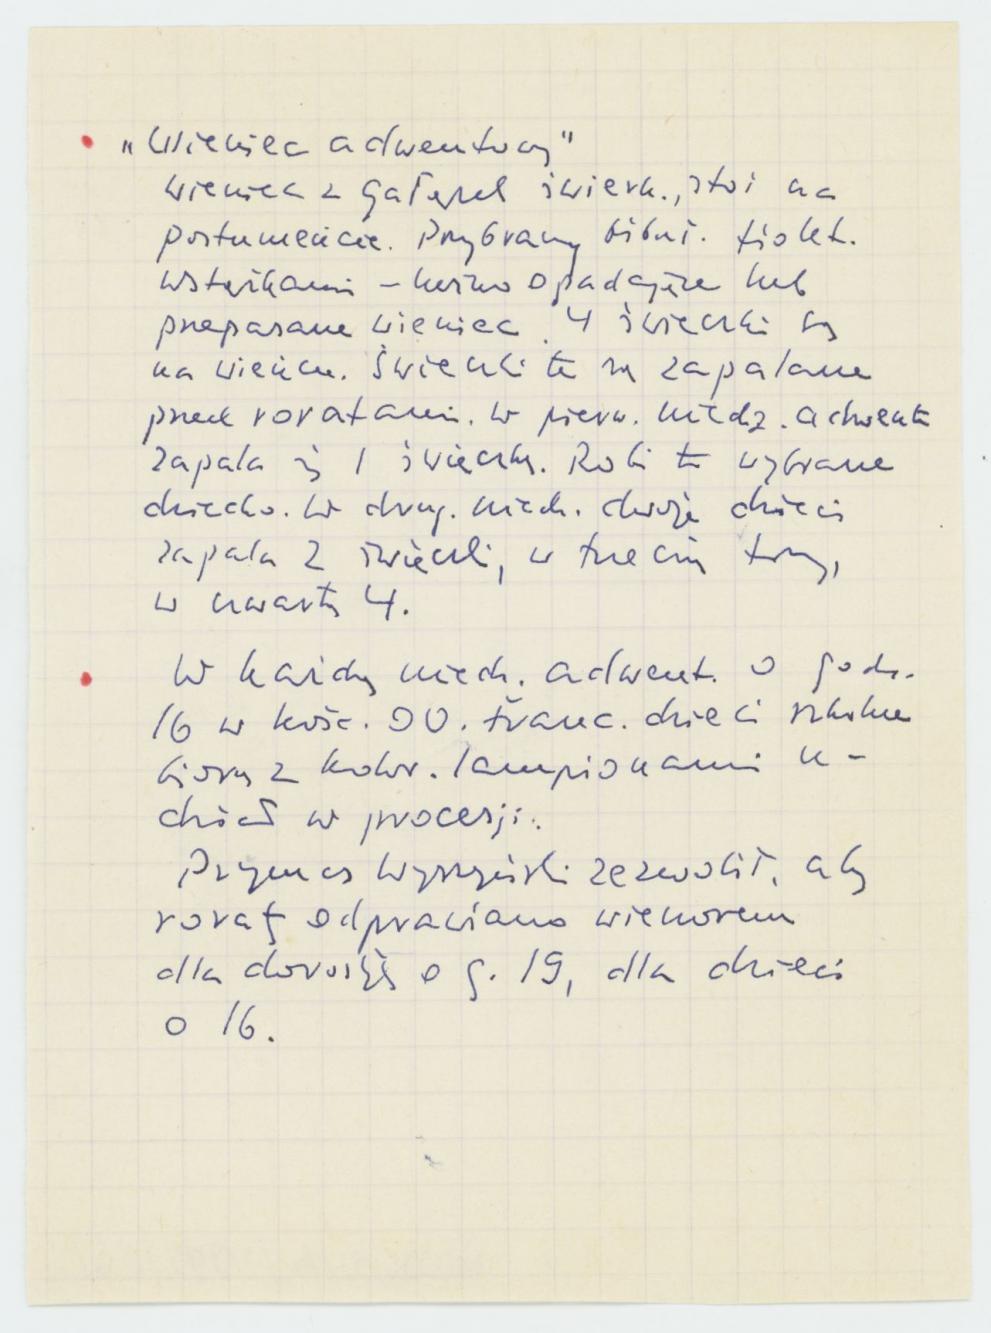 • „Wieniec adwentowy"
wieniec z gałązek świerk., stoi na
postumencie. Przybrany bibuł. fiolet.
wstążkami – luźno opadające lub
przepasane wieniec. 4 świeczki są
na wieńcu. Świeczki te są zapalane
przed roratami. W pierw. niedz. adwentu
zapala się 1 świeczkę. Robi to wybrane
dziecko. W drug. niedz. dwoje dzieci
zapala 2 świeczki, w trzecią trzy,
w czwartą 4.
• W każdą niedz. adwent. o godz.
16 w kośc. OO. Franc. dzieci szkolne
biorą z kolor. lampionami u-
dział w procesji.
Prymas Wyszyński zezwolił, aby
roraty odprawiano wieczorem
dla dorosłych o g. 19, dla dzieci
o 16.